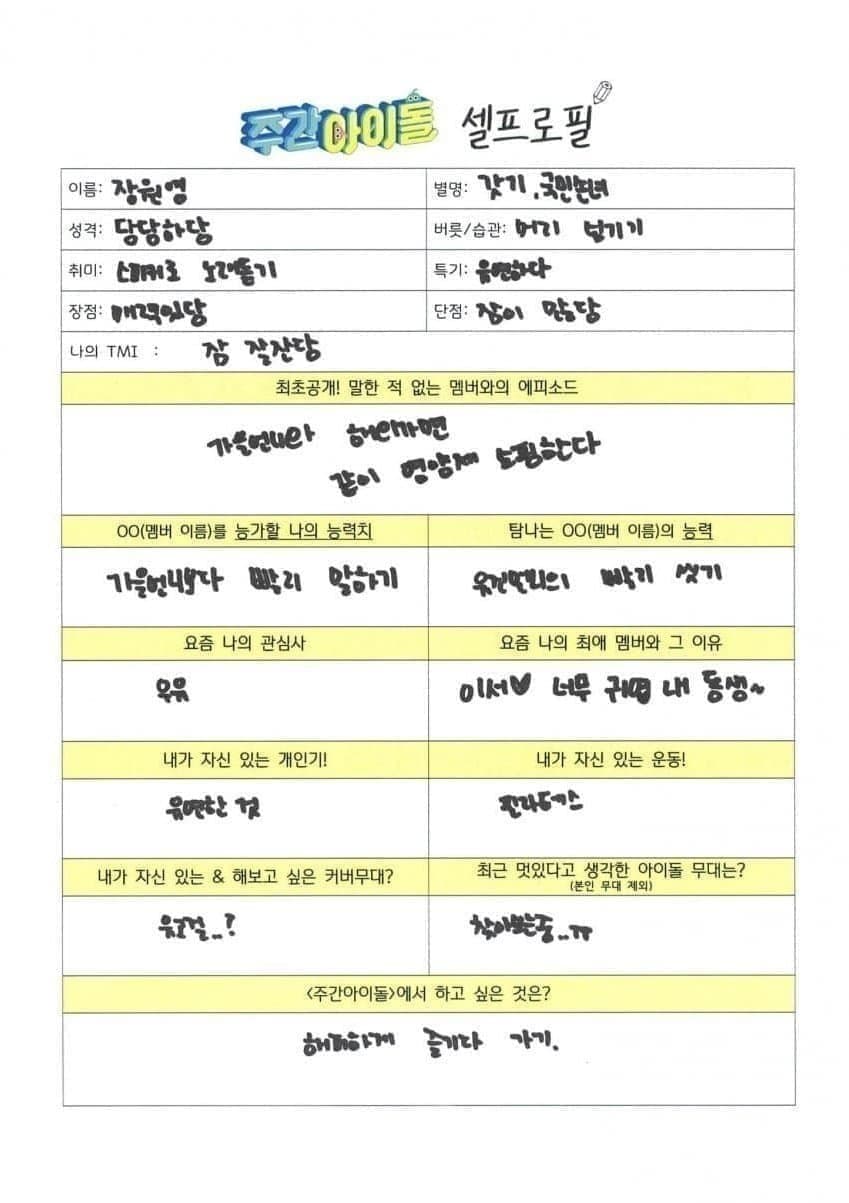 주간아이돌 셀프로필
이름: 장원영
별명: 갓기, 국민손녀
성격: 당당하당
버릇/습관: 머리 넘기기
취미: 스피커로 노래듣기
특기: 유연하다
장점: 매력있당
단점: 잠이 많당
나의 TMI : 잠 잘잔당
최초공개! 말한 적 없는 멤버와의 에피소드
가을언니와 해외가면
같이 영양제 쇼핑한다
OO(멤버 이름)를 능가할 나의 능력치
탐나는 OO(멤버 이름)의 능력
가을언니보다 빨리 말하기
유진언니의 빨리 씻기
요즘 나의 관심사
요즘 나의 최애 멤버와 그 이유
우유
이서♥ 너무 귀여운 내 동생~
내가 자신 있는 개인기!
내가 자신 있는 운동!
유연한 것
필라테스
내가 자신 있는 & 해보고 싶은 커버무대?
최근 멋있다고 생각한 아이돌 무대는?
(본인 무대 제외)
유고걸..?
찾아보는중..ㅠㅠ
<주간아이돌>에서 하고 싶은 것은?
해피하게 즐기다 가기.